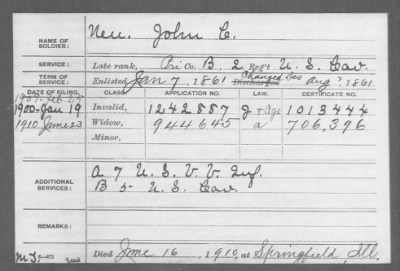 NAME OF SOLDIER: Neu. John C.
SERVICE: Late rank, Pri Co. B, 2 Reg't U. S. Cav
TERM OF SERVICE: Enlisted Jan 7, 1861 Discharged Changed Des Aug ?, 1861
DATE OF FILING. CLASS. APPLICATION NO. LAW. CERTIFICATE NO.
1900 Jan 19 Invalid, 1242887 1013444
1910 June 23 Widow, 944645 a 706,396
Minor,
ADDITIONAL SERVICES: A 7 U. S. V. V. Inf.
B 5 U. S. Cav.
REMARKS:
Died June 16, 1910, at Springfield, Ill.